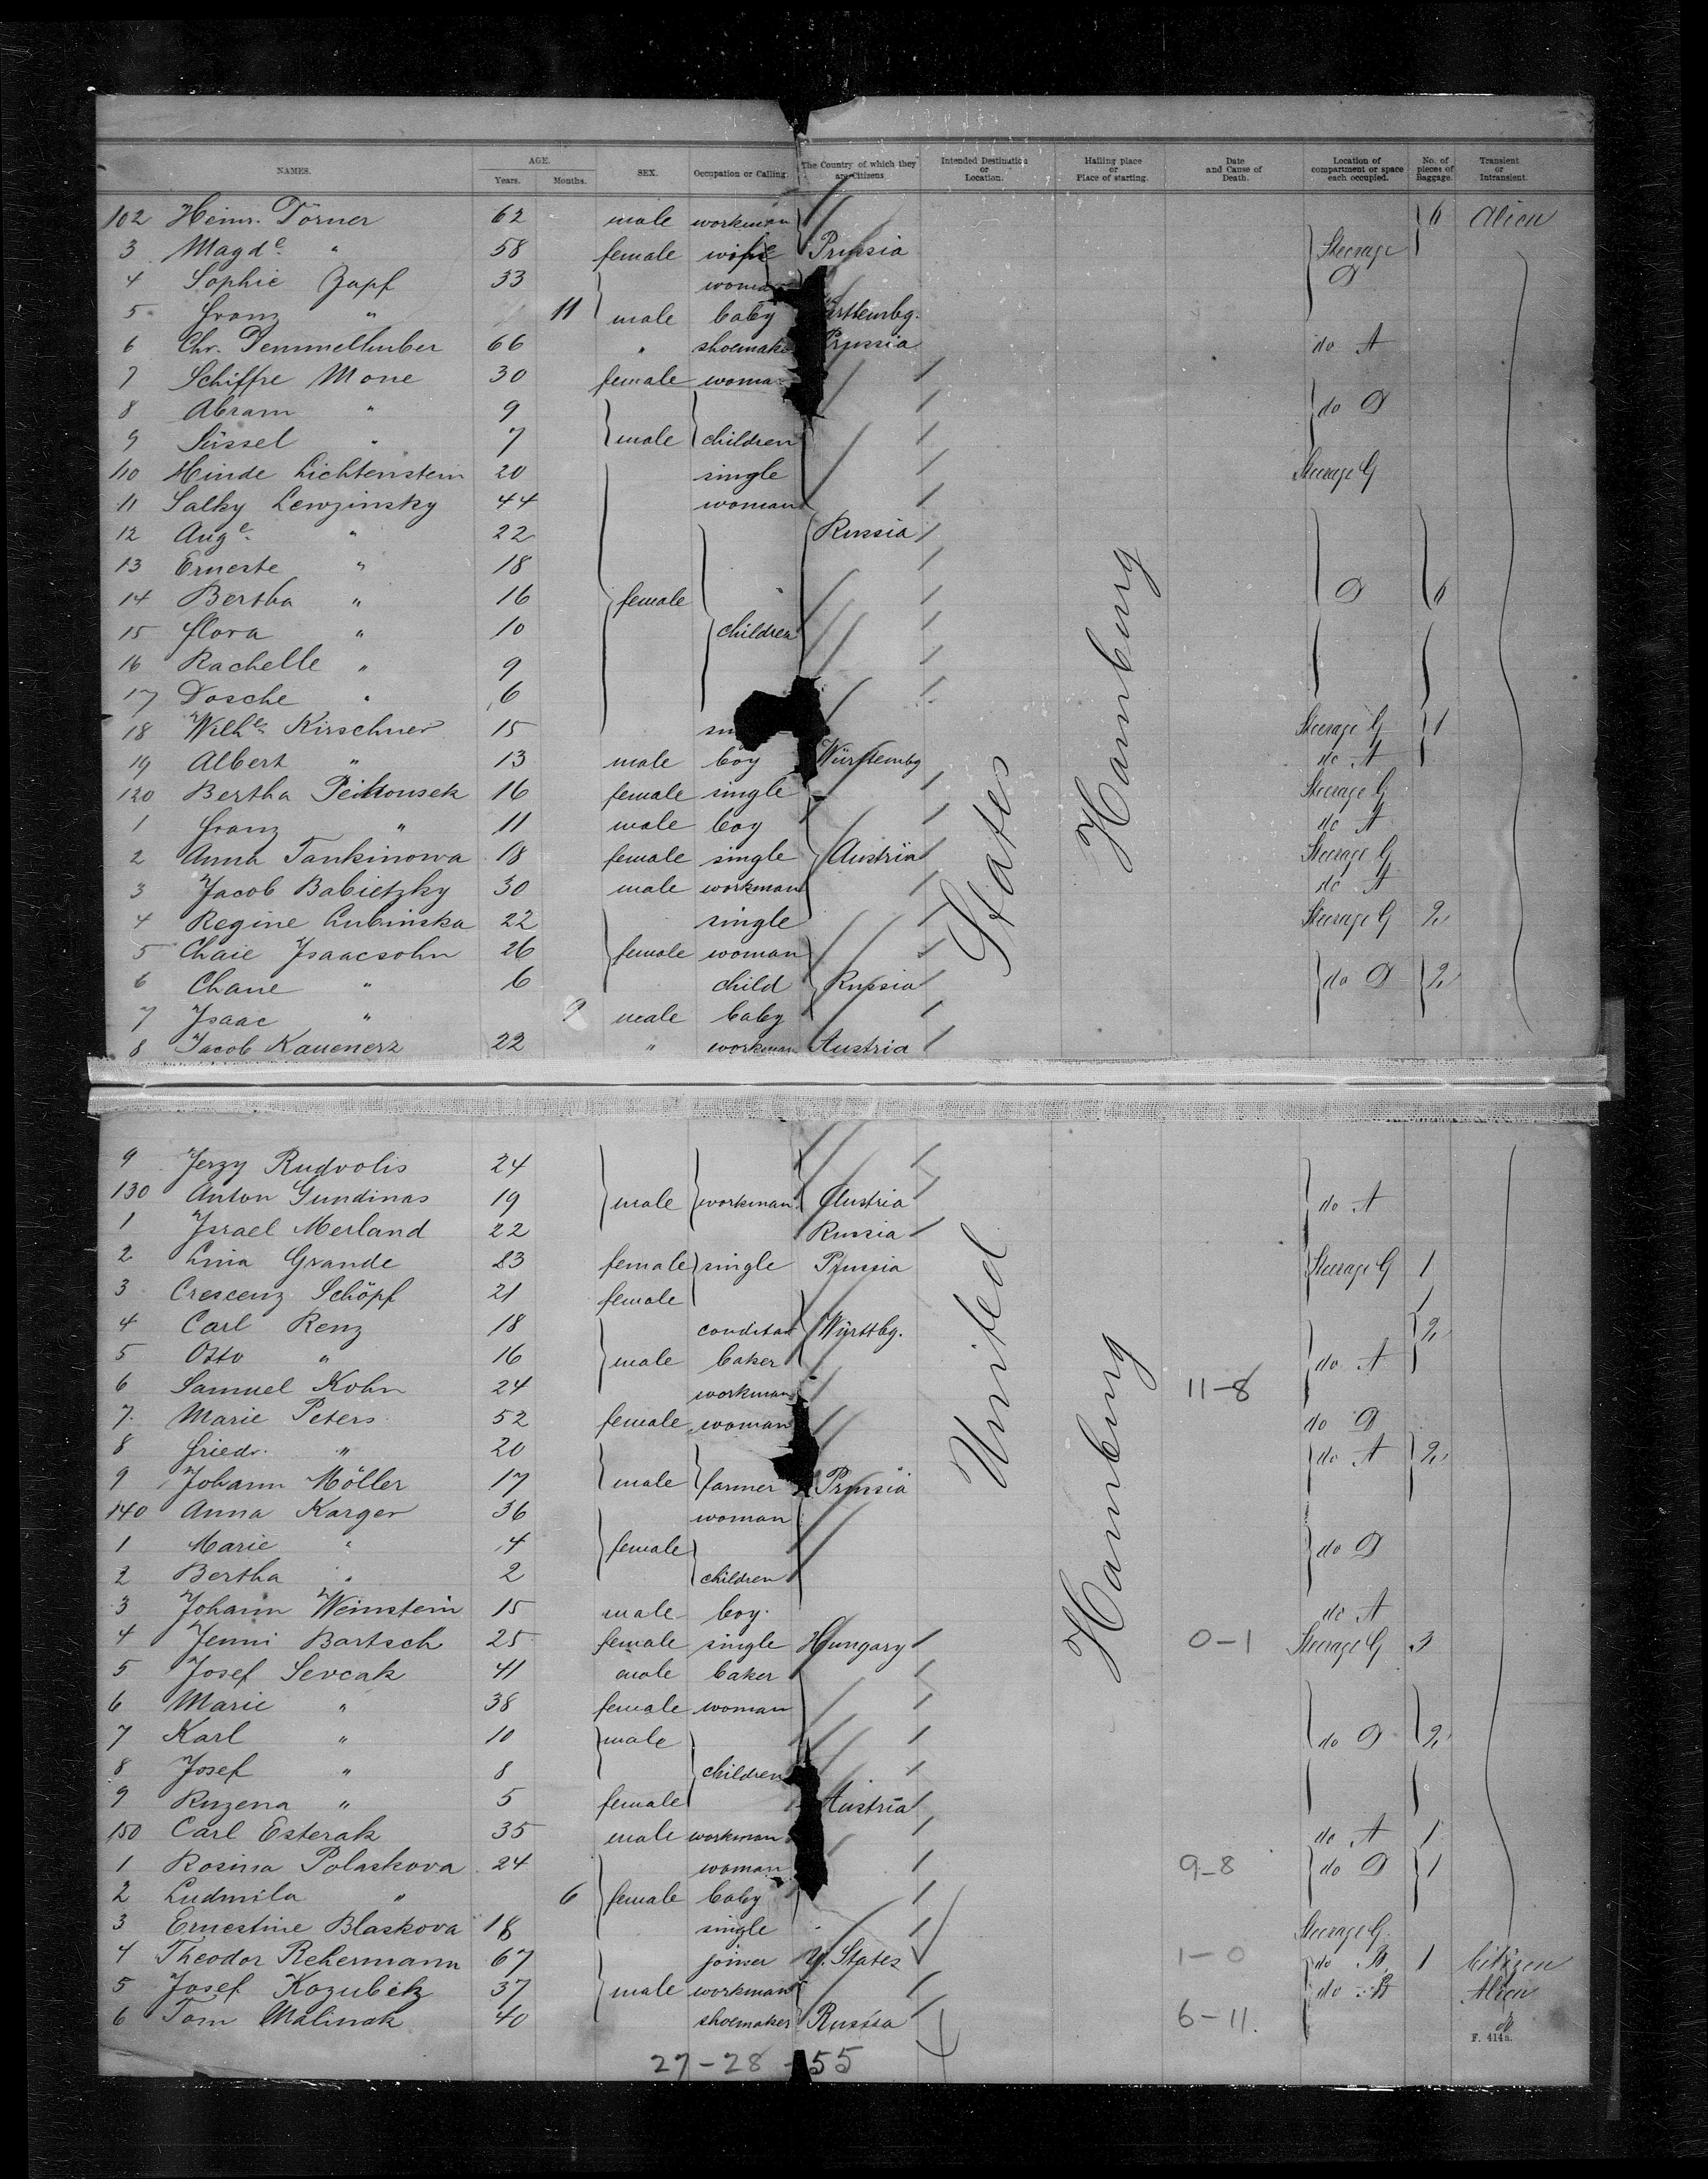 NAMES. AGE. Years. Months. SEX. Occupation or Calling. The Country of which they are Citizens Intended Destination or Location. Hailing place or Place of starting. Date and Cause of Death. Location of compartment or space each occupied. No. of pieces of Baggage. Transient or Intransient.
102 Heinr. Törner 62 male workman 6 Alien
3 Magde. " 58 female wife Prussia Steerage
4 Sophie Zapf 33 woman D
5 Franz " 11 male baby
6 Chr. Demmelhuber 66 " shoemaker Prussia do A
7 Schiffre Mone 30 female woman
8 Abram " 9 do D
9 Süssel " 7 male children
110 Hinde Lichtenstein 20 single Steerage G
11 Salky Lewzinsky 44 woman
12 Auge. " 22 Russia
13 Erneste " 18
14 Bertha " 16 female D 6
15 Flora " 10 children
16 Rachelle " 9
17 Dosche " 6
18 Wilhe. Kirschner 15 Steerage G 1
19 Albert " 13 male boy Württembg do A
120 Bertha 16 female single Steerage G
1 Franz " 11 male boy do A
2 Anna Tankinowa 18 female single Austria Steerage G
3 Jacob Babietzky 30 male workman do A
4 Regine Lubinska 22 single Steerage G 2
5 Chaie Isaacsohn 26 female woman
6 Chane " 6 child Russia do D 2
7 Isaac " 9 male baby
8 Jacob Kauenerz 22 " workman Austria
States
Hamburg
9 Jerzy Rudvolis 24
130 Anton Gundinas 19 male workman Austria do A
1 Israel Merland 22 Russia
2 Lina Grande 23 female single Prussia Steerage G 1
3 Crescenz Schöpf 21 female 1
4 Carl Renz 18 conditor Württbg. 2
5 Otto " 16 male baker do A
6 Samuel Kohn 24 workman 11-8
7 Marie Peters 52 female woman do D
8 Friedr. " 20 do A 2
9 Johann Möller 17 male farmer Prussia
140 Anna Karger 36 woman
1 Marie " 4 female do D
2 Bertha " 2 children
3 Johann Weinstein 15 male boy do A
4 Jenni Bartsch 25 female single Hungary 0-1 Steerage G 3
5 Josef Sevcak 41 male baker
6 Marie " 38 female woman
7 Karl " 10 male do D 2
8 Josef " 8 children
9 Ruzena " 5 female Austria
150 Carl Esterak 35 male workman do A 1
1 Rosina Polaskova 24 woman 9-8 do D 1
2 Ludmila " 6 female baby
3 Ernestine Blaskova 18 single Steerage G
4 Theodor Rehermann 67 joiner U. States 1-0 do 1 Citizen
5 Josef Kozubek 37 male workman do Alien
6 Tom Malinak 40 shoemaker Russia 6-11.
United
Hamburg
F. 414a.
27-28-55